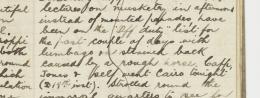 lectures on musketry in afternoon
instead of mounted parades have
been on the "off duty" list for
the past couple of days with
lumbago or strained back
caused by a rough horse, Capt,
Jones & self went Cairo tonight
(21st inst). Strolled round the
immoral quarters to see